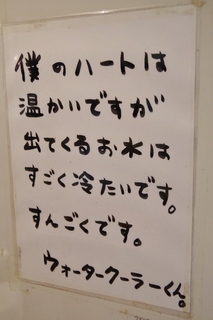 僕のハートは
温かいですが
出てくるお水は
すごく冷たいです。
すんごくです。
ウォータークーラーくん。